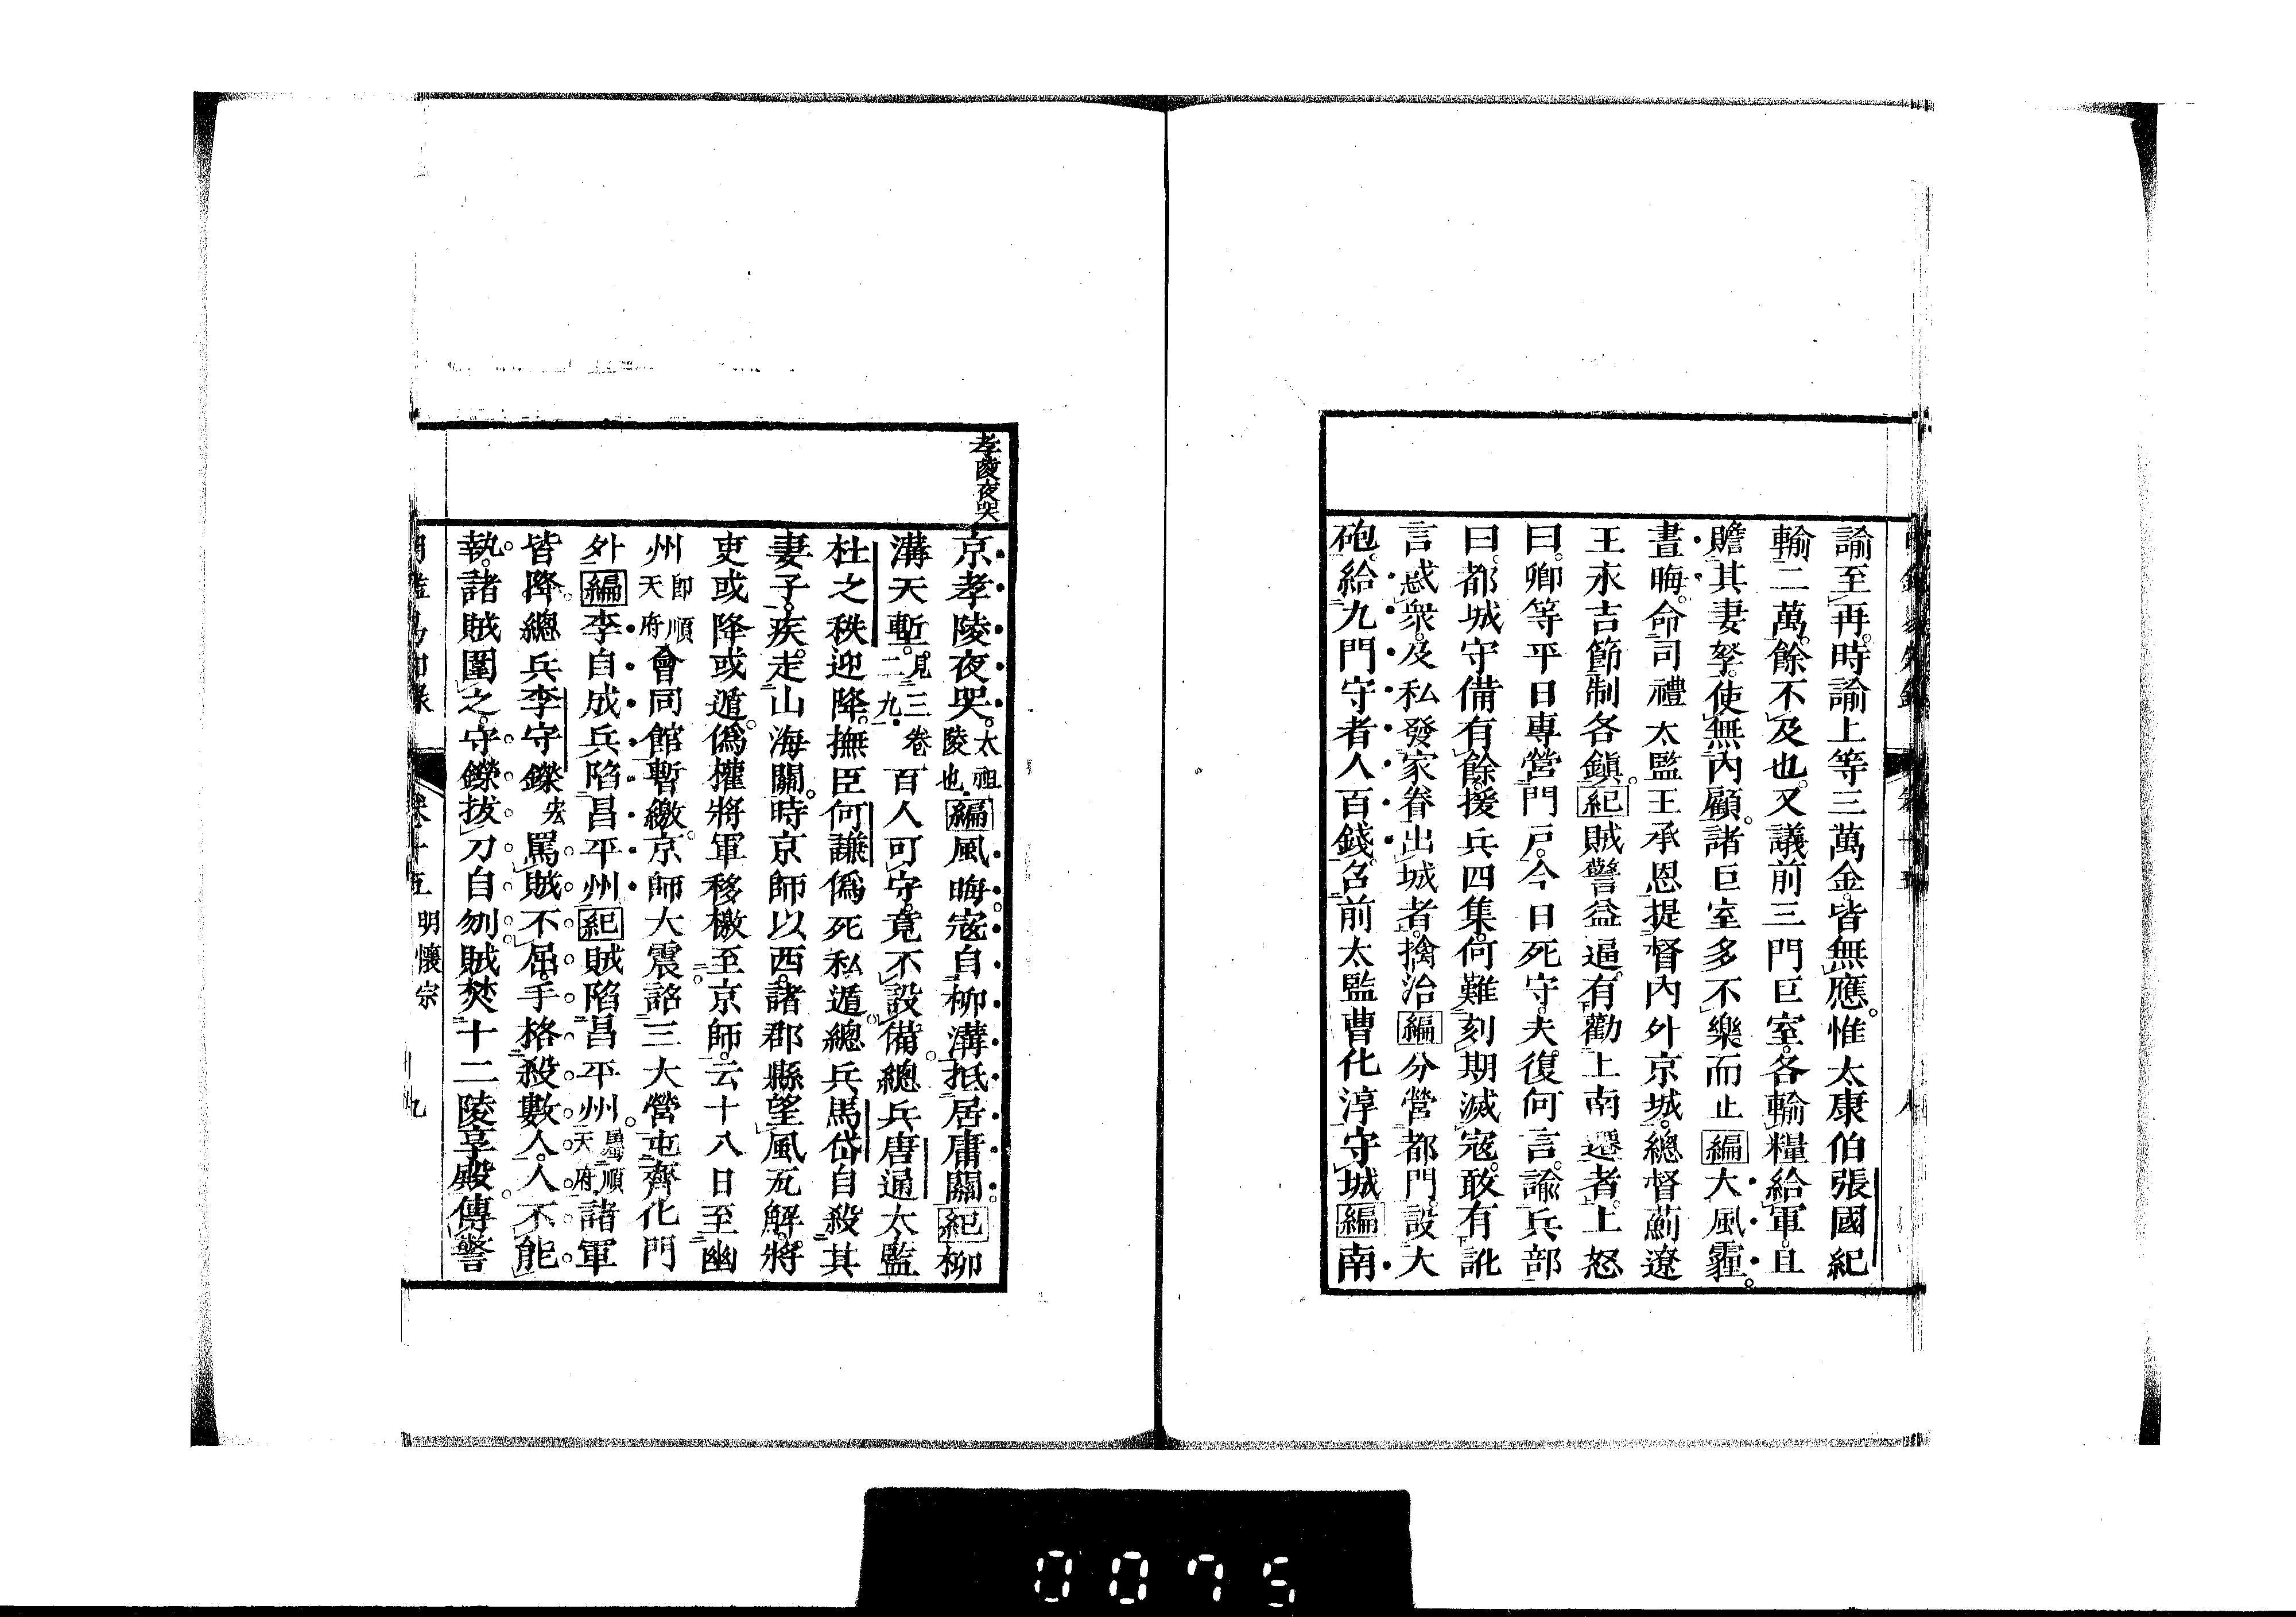 諭至再。時諭上等三萬金。皆無應。惟太康伯張國紀
輸二萬。餘不及也。又議前三門巨室。各輸糧給軍。且
贍其妻孥。使無內顧。諸巨室多不樂而止編大風霾。
晝晦。命司禮太監王承恩提督內外京城。總督薊遼
王永吉節制各鎮。紀賊警益逼。有勸上南遷者。上怒
曰。卿等平日專營門戶。今日死守。夫復何言。諭兵部
曰。都城守備有餘。援兵四集。何難刻期滅寇。敢有訛
言惑衆。及私發家眷出城者。擒治編分營都門。設大
砲。給九門守者人百錢。召前太監曹化淳守城編南
孝陵夜哭
京孝陵夜哭。太祖陵也。編風晦。寇自柳溝抵居庸關。紀柳
溝天塹。見三卷二九。百人可守。竟不設備。總兵唐通太監
杜之秩迎降。撫臣何謙僞死私遁。總兵馬岱自殺其
妻子。疾走山海關。時京師以西。諸郡縣望風瓦解。將
吏或降或遁。僞權將軍移檄至京師。云十八日至幽
州卽順天府會同館暫繳。京師大震。詔三大營屯齊化門
外編李自成兵陷昌平州紀賊陷昌平州。屬順天府諸軍
皆降。總兵李守鑅罵賊不屈。手格殺數人。人不能
執。諸賊圍之。守鑅拔刀自刎。賊焚十二陵享殿。傳警
卷十五 明懷宗 九